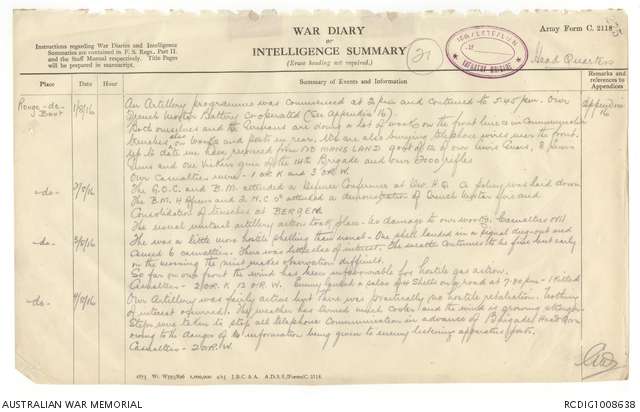 WAR DIARY
or
INTELLIGENCE SUMMARY
(Erase heading not required.)
Army Form C. 2118.
Instructions regarding War Diaries and Intelligence
Summaries are contained in F. S. Regs., Part II.
and the Staff Manual respectively. Title Pages
will be prepared in manuscript.
Head Quarters
INFANTRY BRIGADE
Place
Date
Hour
Summary of Events and Information
Remarks and
references to
Appendices
Rouge-de-
Bout
1/10/16
An Artillery programme was commenced at 2 pm and continued to 3.45 pm. Our
Trench Mortar Battery co-operated (See Appendix 16).
Appendix
16
Both ourselves and the Germans are doing a lot of work on the front line & in Communication
trenches also on roads and posts in rear. We are also burying telephone wires near the front.
Up to date we have removed from NO MANS LAND 9 out of 12 of our Lewis Guns, 8
Guns and one Vickers gun of the 14th Brigade and over 2000 rifles
Our casualties were - 1 O.R. K and 3 O.R. W.
-do-
2/10/16
The G.O.C. and B.M. attended a Defence Conference at Div. H.Q. A policy was laid down
The B.M. 4 Officers and 2 N.C.Os attended a demonstration of trench mortar fire and
Consolidation of trenches at BERGEN.
The usual mutual artillery action took place - no damage to our works. Casualties Nil
-do-
3/10/16
There was a little more hostile shelling than usual. One shell landed in a signal dugout and
caused 6 casualties. There was little else of interest. The weather continues to be fine but early
in the morning the mist makes observation difficult.
So far on our front the wind has been unfavourable for hostile gas action.
Casualties - 2 O.R. K 13 O.R. W. Enemy fired a salvo for Shells on a road at 7.30 pm - 1 Killed
-do-
4/10/16
Our Artillery was fairly active but there was practically no hostile retaliation. Nothing
of interest occurred. The weather has turned much cooler and the wind is growing stronger
Steps were taken to stop all telephone communication in advance of Brigade Head Qrs
owing to the danger of information being given to enemy listening apparatus posts.
Casualties - 2 O.R. W.
1875 Wt. W593/826 1,000,000 4/15 J.B.C. & A. A.D.S.S./Forms/C. 2118.
AUSTRALIAN WAR MEMORIAL
RCDIG1008638